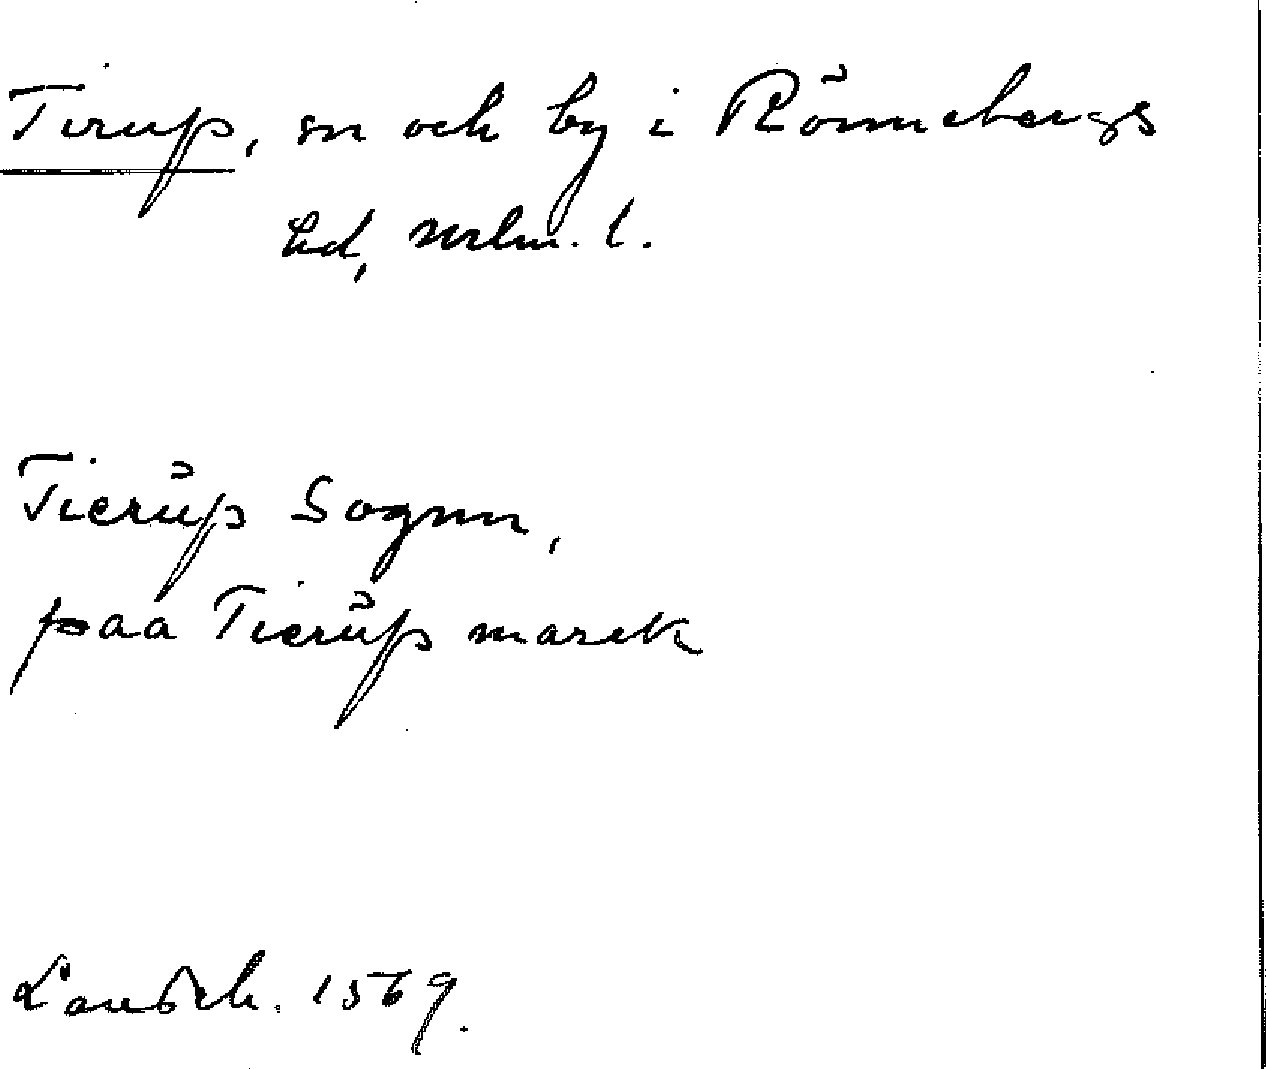 Tirup, sn och by i Rönnebergs
hd, Mrlm. l.
Tierŭp Sognn,
paa Tierŭp marck
Landzb. 1569.